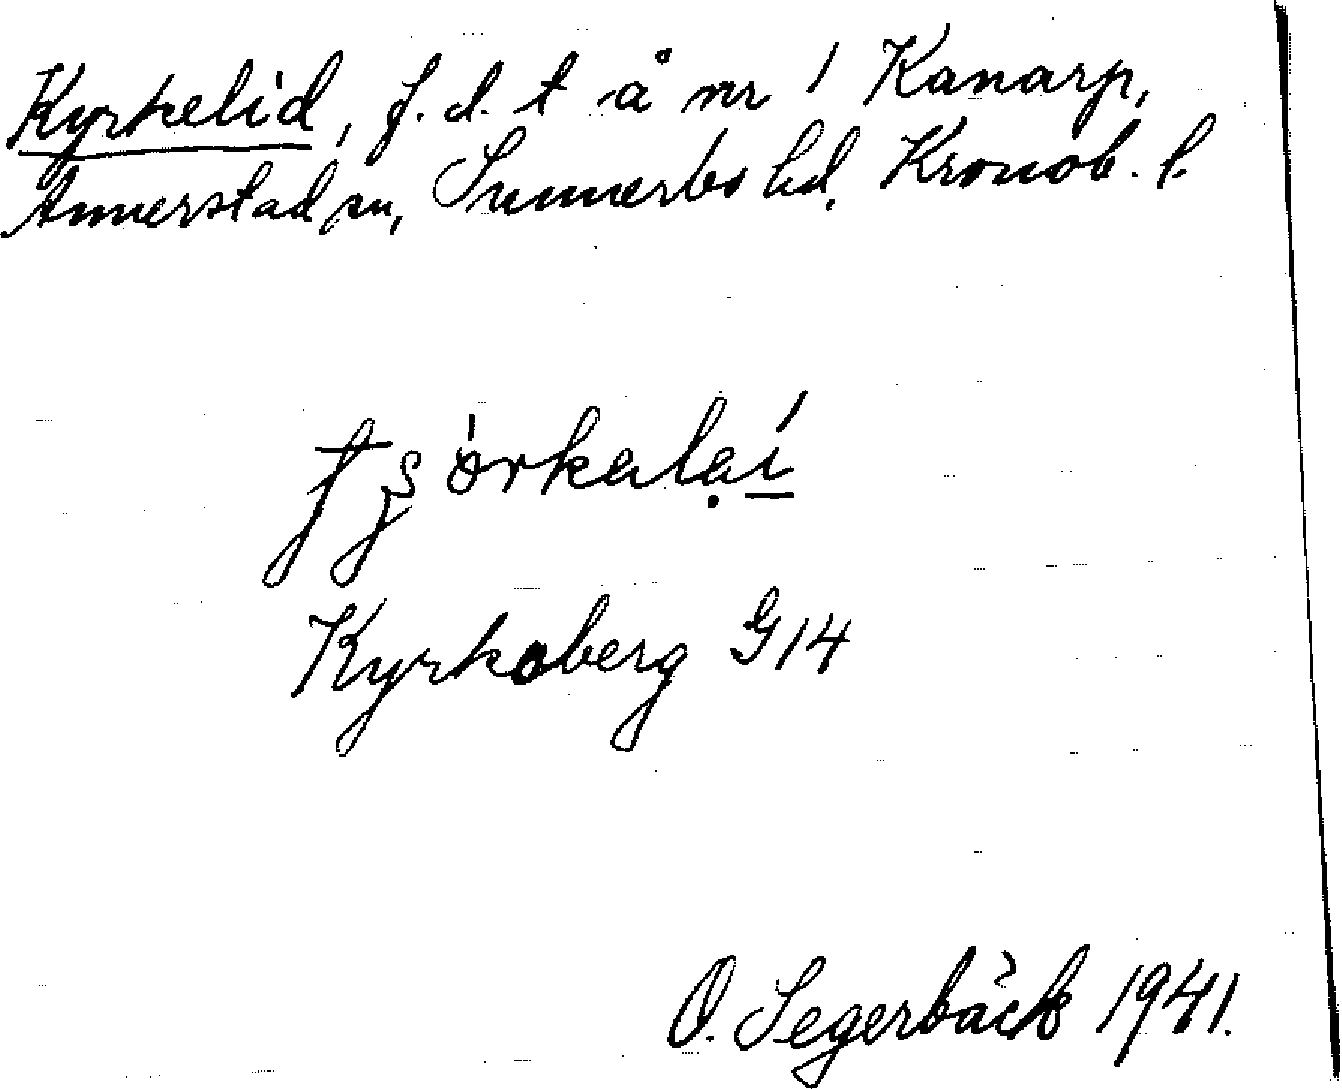 Kyrkelid, f.d. t å nr 1 Kanarp,
Annerstad sn, Sunnerbo hd, Kronob. l.
Kyrkoberg G14
O. Segerbäck 1941.